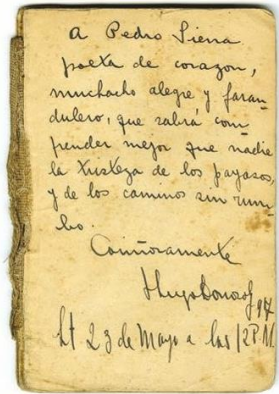 A Pedro Sienna
poeta de corazon,
muchacho alegre y faran
dulero, que sabrá com
prender mejor que nadie
la tristeza de los payasos,
y de los caminos sin rum
bo.
Cariñosamente
Hugo Donoso
23 de Mayo a las 12 P.M.